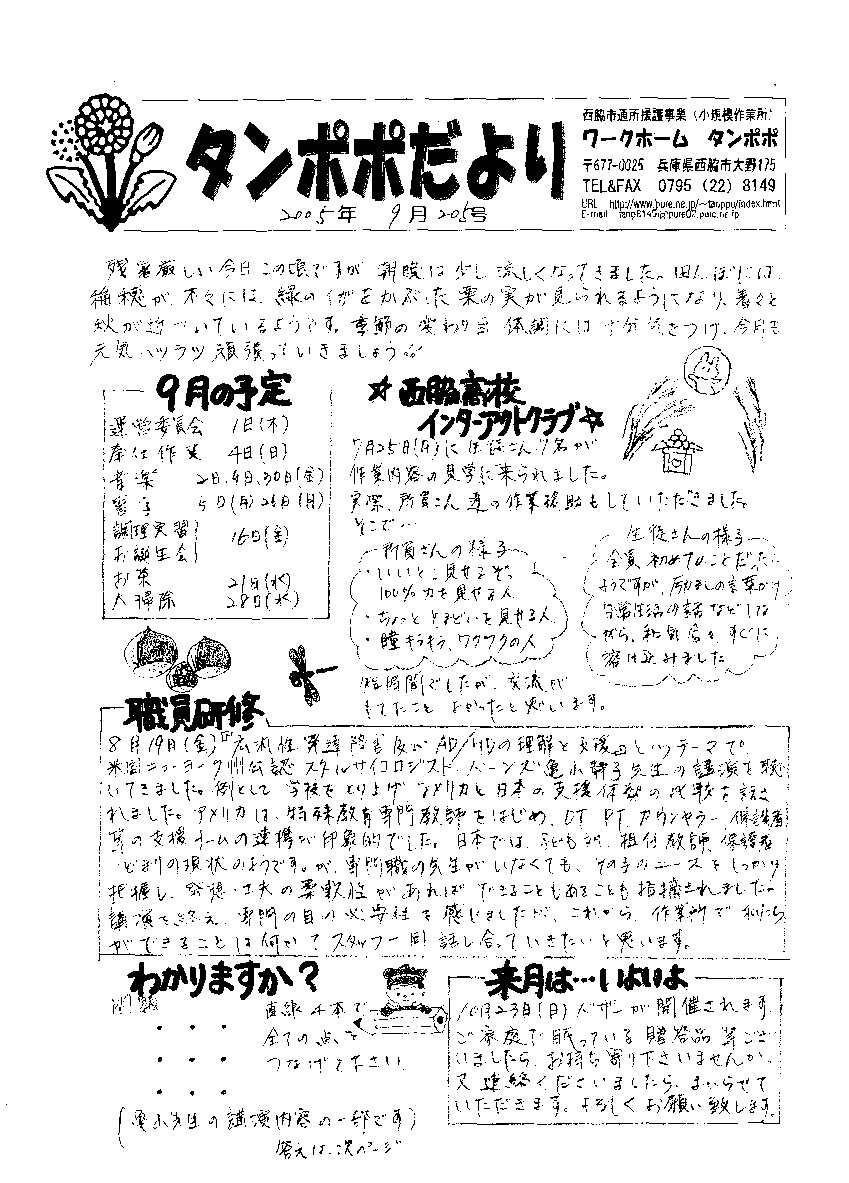 西脇市通所援護事業(小規模作業所)
ワークホーム タンポポ
〒677-0025 兵庫県西脇市大野175
TEL&FAX 0795 (22) 8149
タンポポだより
2005年 9月 205号
残暑厳しい今日この頃ですが 朝晩は少し涼しくなってきました。田んぼには、
稲穂が、木々には、緑のイガをかぶった栗の実が見られるようになり、着々と
秋が近づいているようです。季節の変わり目 体調には十分気をつけ、今月も
元気ハツラツ頑張っていきましょう
9月の予定
運営委員会 1日(木)
奉仕作業 4日(日)
音楽 2日,9日,30日(金)
習字 5日(月) 26日(月)
調理実習
お誕生会 16日(金)
お茶 21日(水)
大掃除 28日(水)
☆西脇高校
インターアクトクラブ☆
7月25日(月)に生徒さん7名が
作業内容の見学に来られました。
実際、所員さん達の作業援助もしていただきました。
そこで…
所員さんの様子
・いいとこ見せるぞ、!
100%力を見せる人
・ちょっと とまどいを見せる人
・瞳キラキラ、ワクワクの人
生徒さんの様子
全員 初めてのことだった
ようですが、励ましの言葉かけ
日常生活の話などしな
がら、和気合々 すぐに
溶け込みました
短時間でしたが、交流が
できたこと よかったと思います。
職員研修
8月19日(金)『広汎性発達障害及びAD/HDの理解と支援』というテーマで、
米国ニューヨーク州公認 スクールサイコロジスト、バーンズ亀山静子先生の講演を聴
いてきました。例として 学校をとりあげ アメリカと日本の支援体制の比較を話さ
れました。アメリカは、特殊教育専門教師をはじめ、OT PT カウンセラー 保護者
等の支援チームの連携が印象的でした。日本では、子ども 担任教師、保護者
どまりの現状のようです。が、専門職の先生がいなくても、その子のニーズをしっかり
把握し、発想・工夫の柔軟性があれば できることもあることも指摘されました。
講演を終え、専門の目の必要性を感じましたが、これから、作業所で私たち
ができることは何か? スタッフ一同 話し合っていきたいと思います。
わかりますか?
問題
直線4本で
全ての点を
つなげて下さい
(亀山先生の講演内容の一部です)
答えは、次ページ
来月は…いよいよ
10月23日(日)バザーが開催されます
ご家庭で眠っている贈答品等ござ
いましたら、お持ち寄り下さいませんか。
又連絡くださいましたら、まいらせて
いただきます。よろしくお願い致します。